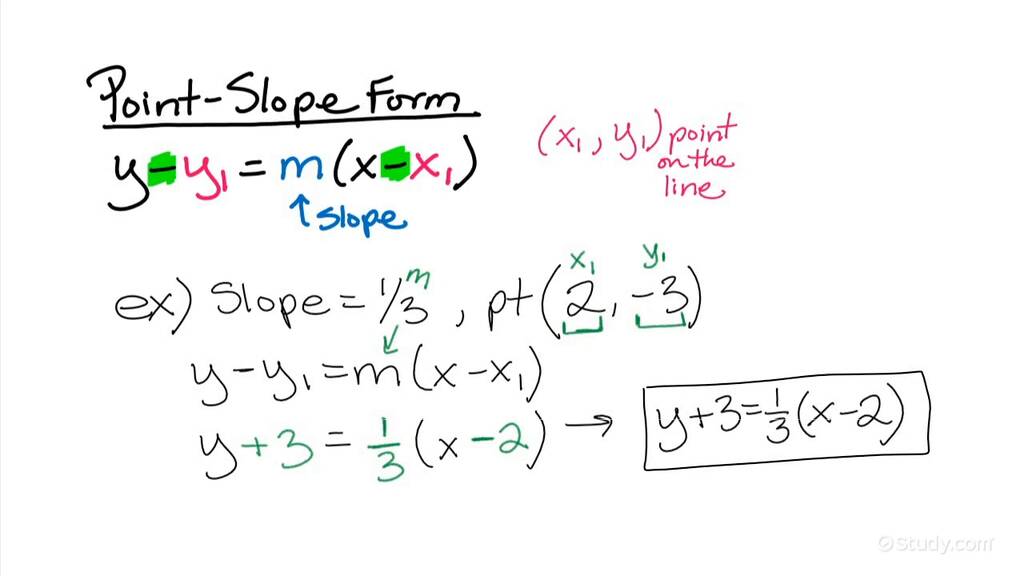 Point-Slope Form
y - y₁ = m(x - x₁)
↑ slope
(x₁, y₁) point
on the
line
x₁ y₁
m
ex) Slope = 1/3, pt(2, -3)
y - y₁ = m(x - x₁)
y + 3 = 1/3 (x - 2) → y + 3 = 1/3 (x - 2)
Study.com